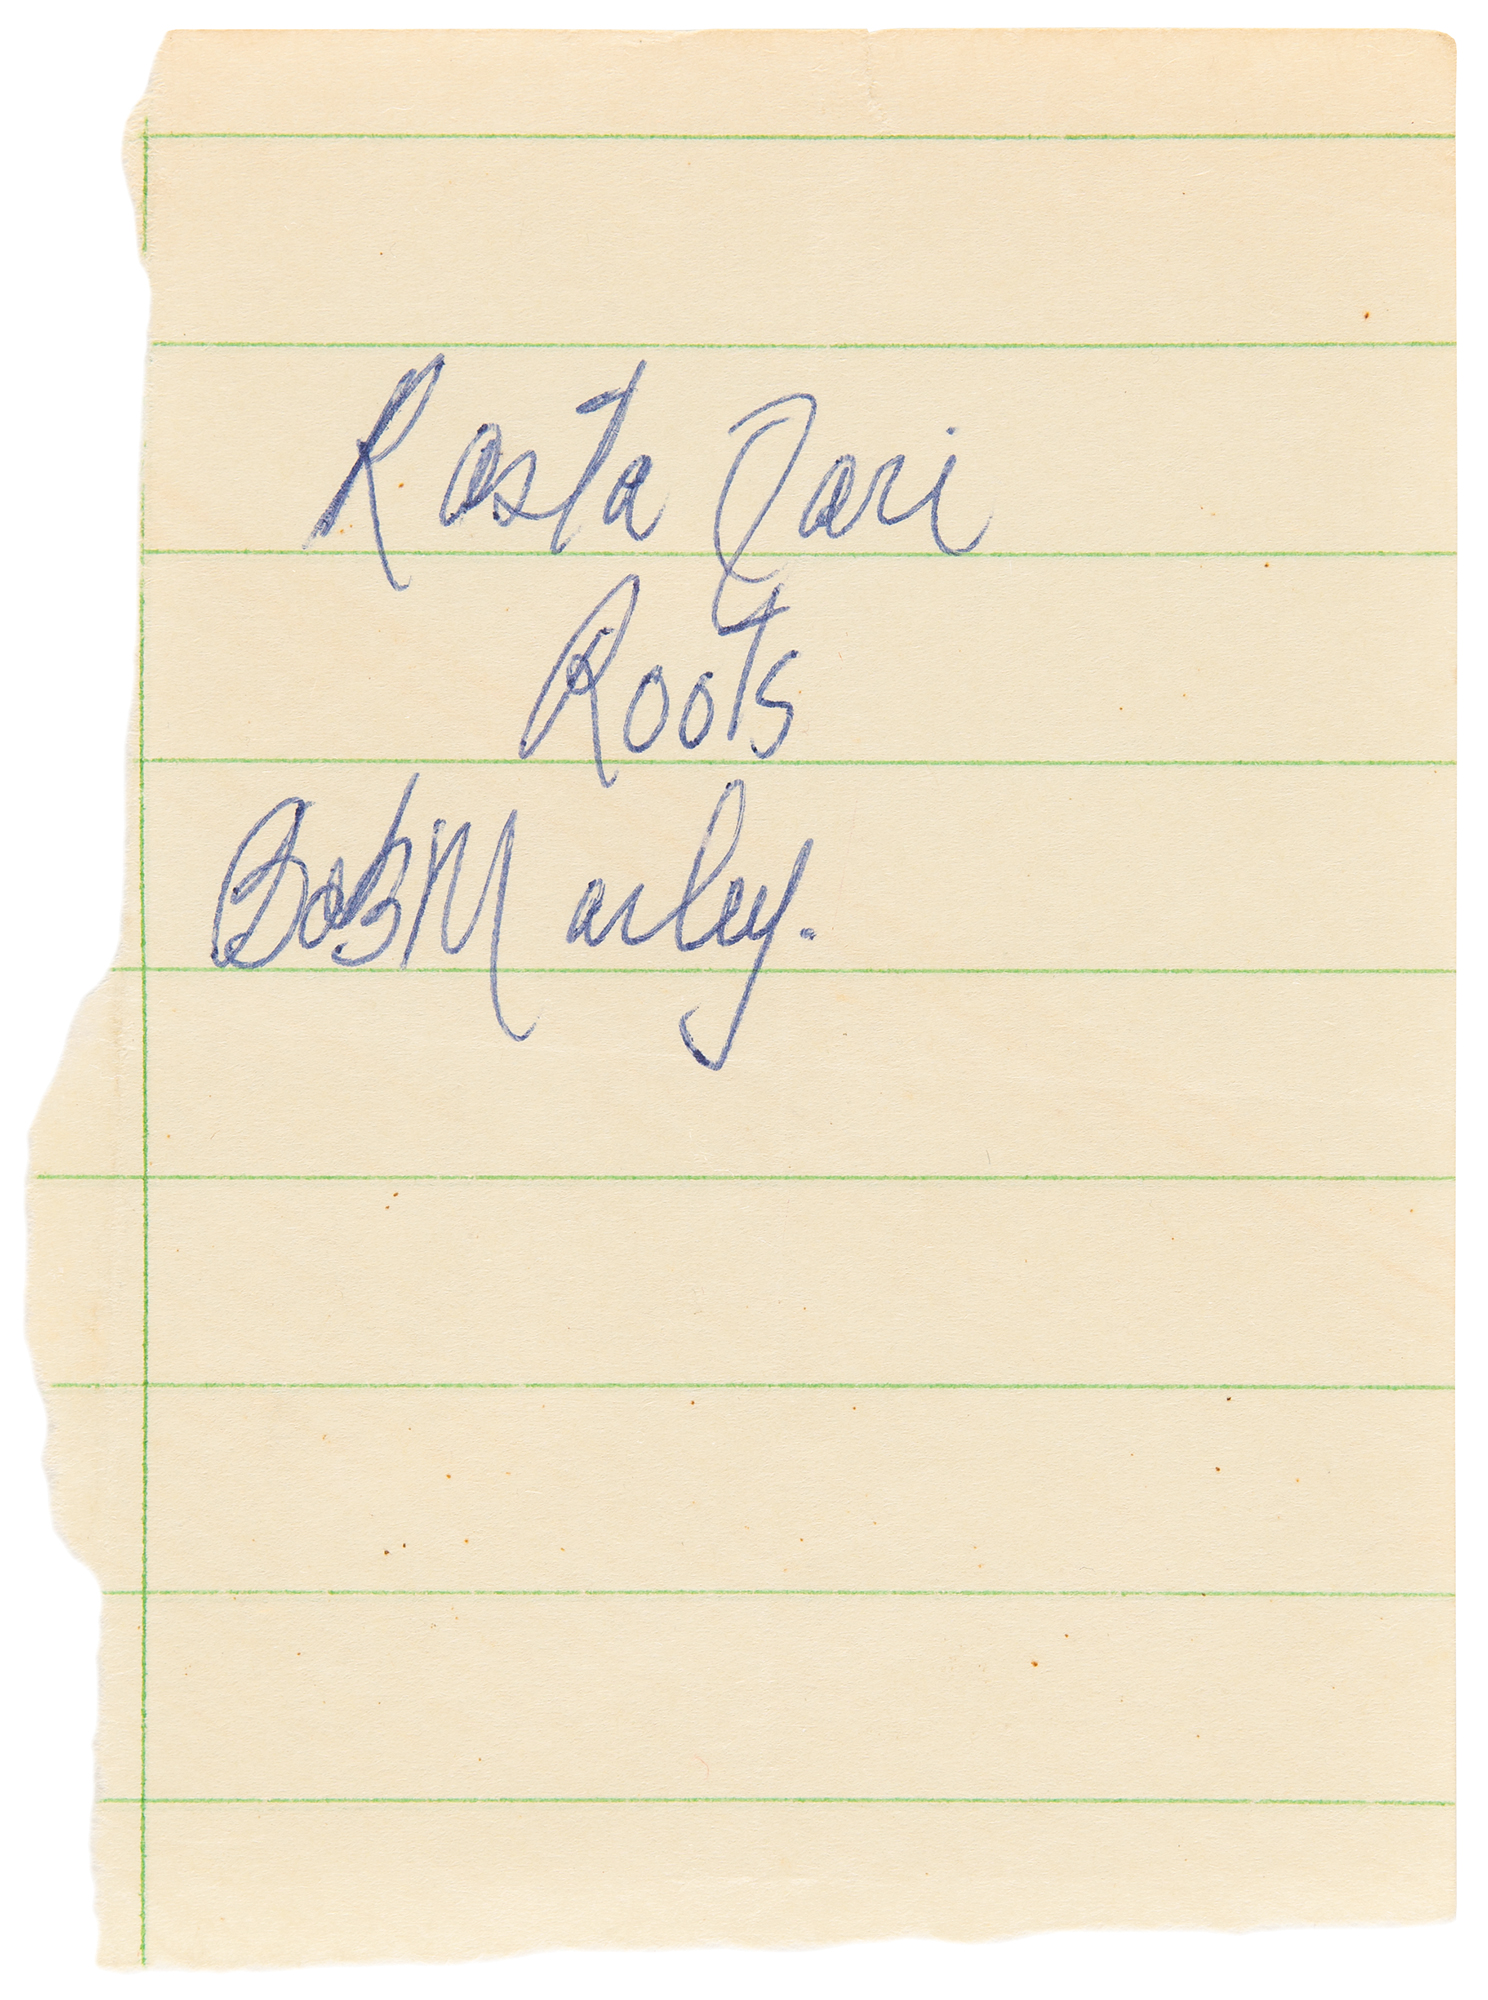 Rasta Fari
Roots
Bob Marley.